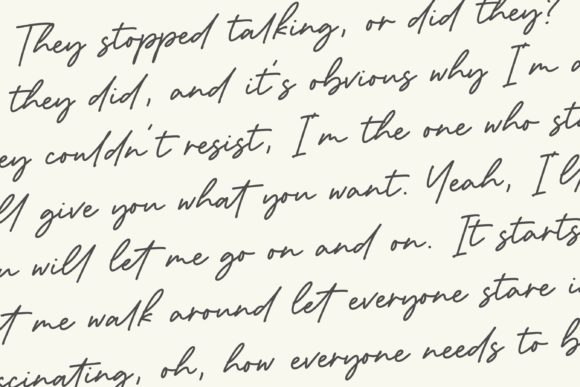 They stopped talking, or did they?
they did, and it's obvious why I'm a
ey couldn't resist, I'm the one who sta
ll give you what you want. Yeah, I'll
u will let me go on and on. It starts
t me walk around let everyone stare i
scinating, oh, how everyone needs to b